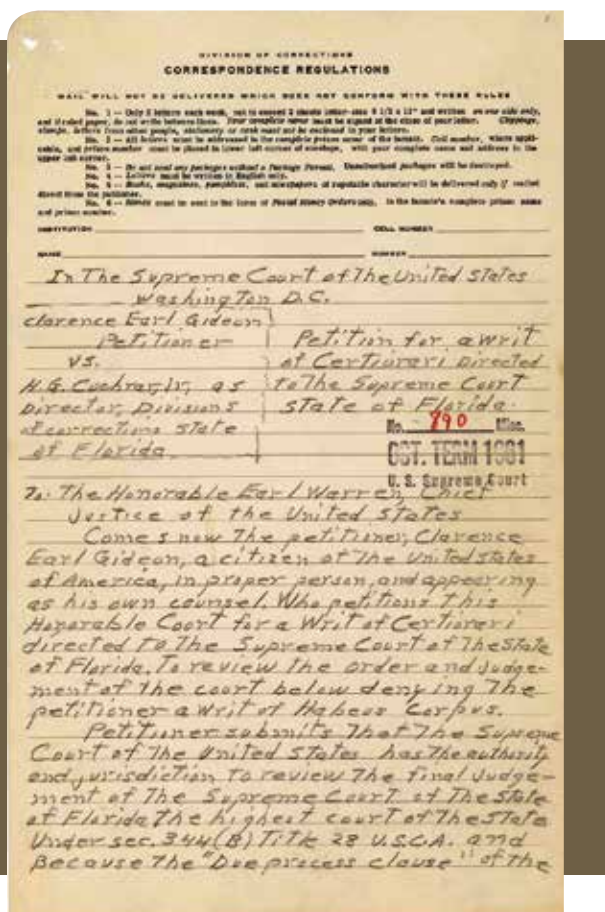 DIVISION OF CORRECTIONS
CORRESPONDENCE REGULATIONS
MAIL WILL NOT BE DELIVERED WHICH DOES NOT CONFORM WITH THESE RULES
No. 1 -- Only 2 letters each week, not to exceed 2 sheets letter-size 8 1/2 x 11" and written on one side only,
and if ruled paper, do not write between lines. Your complete name must be signed at the close of your letter. Clippings,
stamps, letters from other people, stationery or cash must not be enclosed in your letters.
No. 2 -- All letters must be addressed in the complete prison name of the inmate. Cell number, where appli-
cable, and prison number must be placed in lower left corner of envelope, with your complete name and address in the
upper left corner.
No. 3 -- Do not send any packages without a Package Permit. Unauthorized packages will be destroyed.
No. 4 -- Letters must be written in English only.
No. 5 -- Books, magazines, pamphlets, and newspapers of reputable character will be delivered only if mailed
direct from the publisher.
No. 6 -- Money must be sent in the form of Postal Money Orders only, in the inmate's complete prison name
and prison number.
INSTITUTION CELL NUMBER
NAME NUMBER
In The Supreme Court of The United States
Washington D.C.
Clarence Earl Gideon
Petitioner
vs.
H.G. Cochran, Jr., as
Director, Divisions
of corrections State
of Florida
Petition for a writ
of Certiorari Directed
to The Supreme Court
State of Florida.
No. 890 Misc.
OCT. TERM 1961
U. S. Supreme Court
To: The Honorable Earl Warren, Chief
Justice of the United States
Comes now The petitioner, Clarence
Earl Gideon, a citizen of The United states
of America, in proper person, and appearing
as his own counsel. Who petitions this
Honorable Court for a Writ of Certiorari
directed to The Supreme Court of The State
of Florida, To review the order and Judge-
ment of the court below denying The
petitioner a writ of Habeus Corpus.
Petitioner submits That The Supreme
Court of The United States has The authority
and jurisdiction to review the final Judge-
ment of The Supreme Court of The State
of Florida the highest court of The State
Under sec. 344(B) Title 28 U.S.C.A. and
Because The "Due process clause" of the